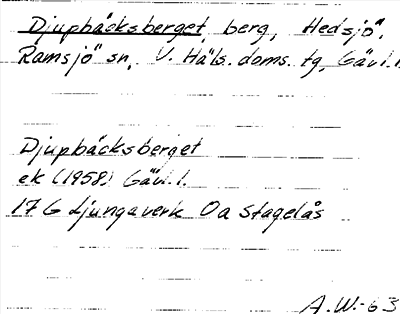 Djupbäcksberget, berg, Hedsjö,
Ramsjö sn, V. Häls. doms. tg, Gävl. l.
Djupbäcksberget
ek (1958) Gävl. l.
17 G Ljungaverk 0a Stagelås
A.W.-63